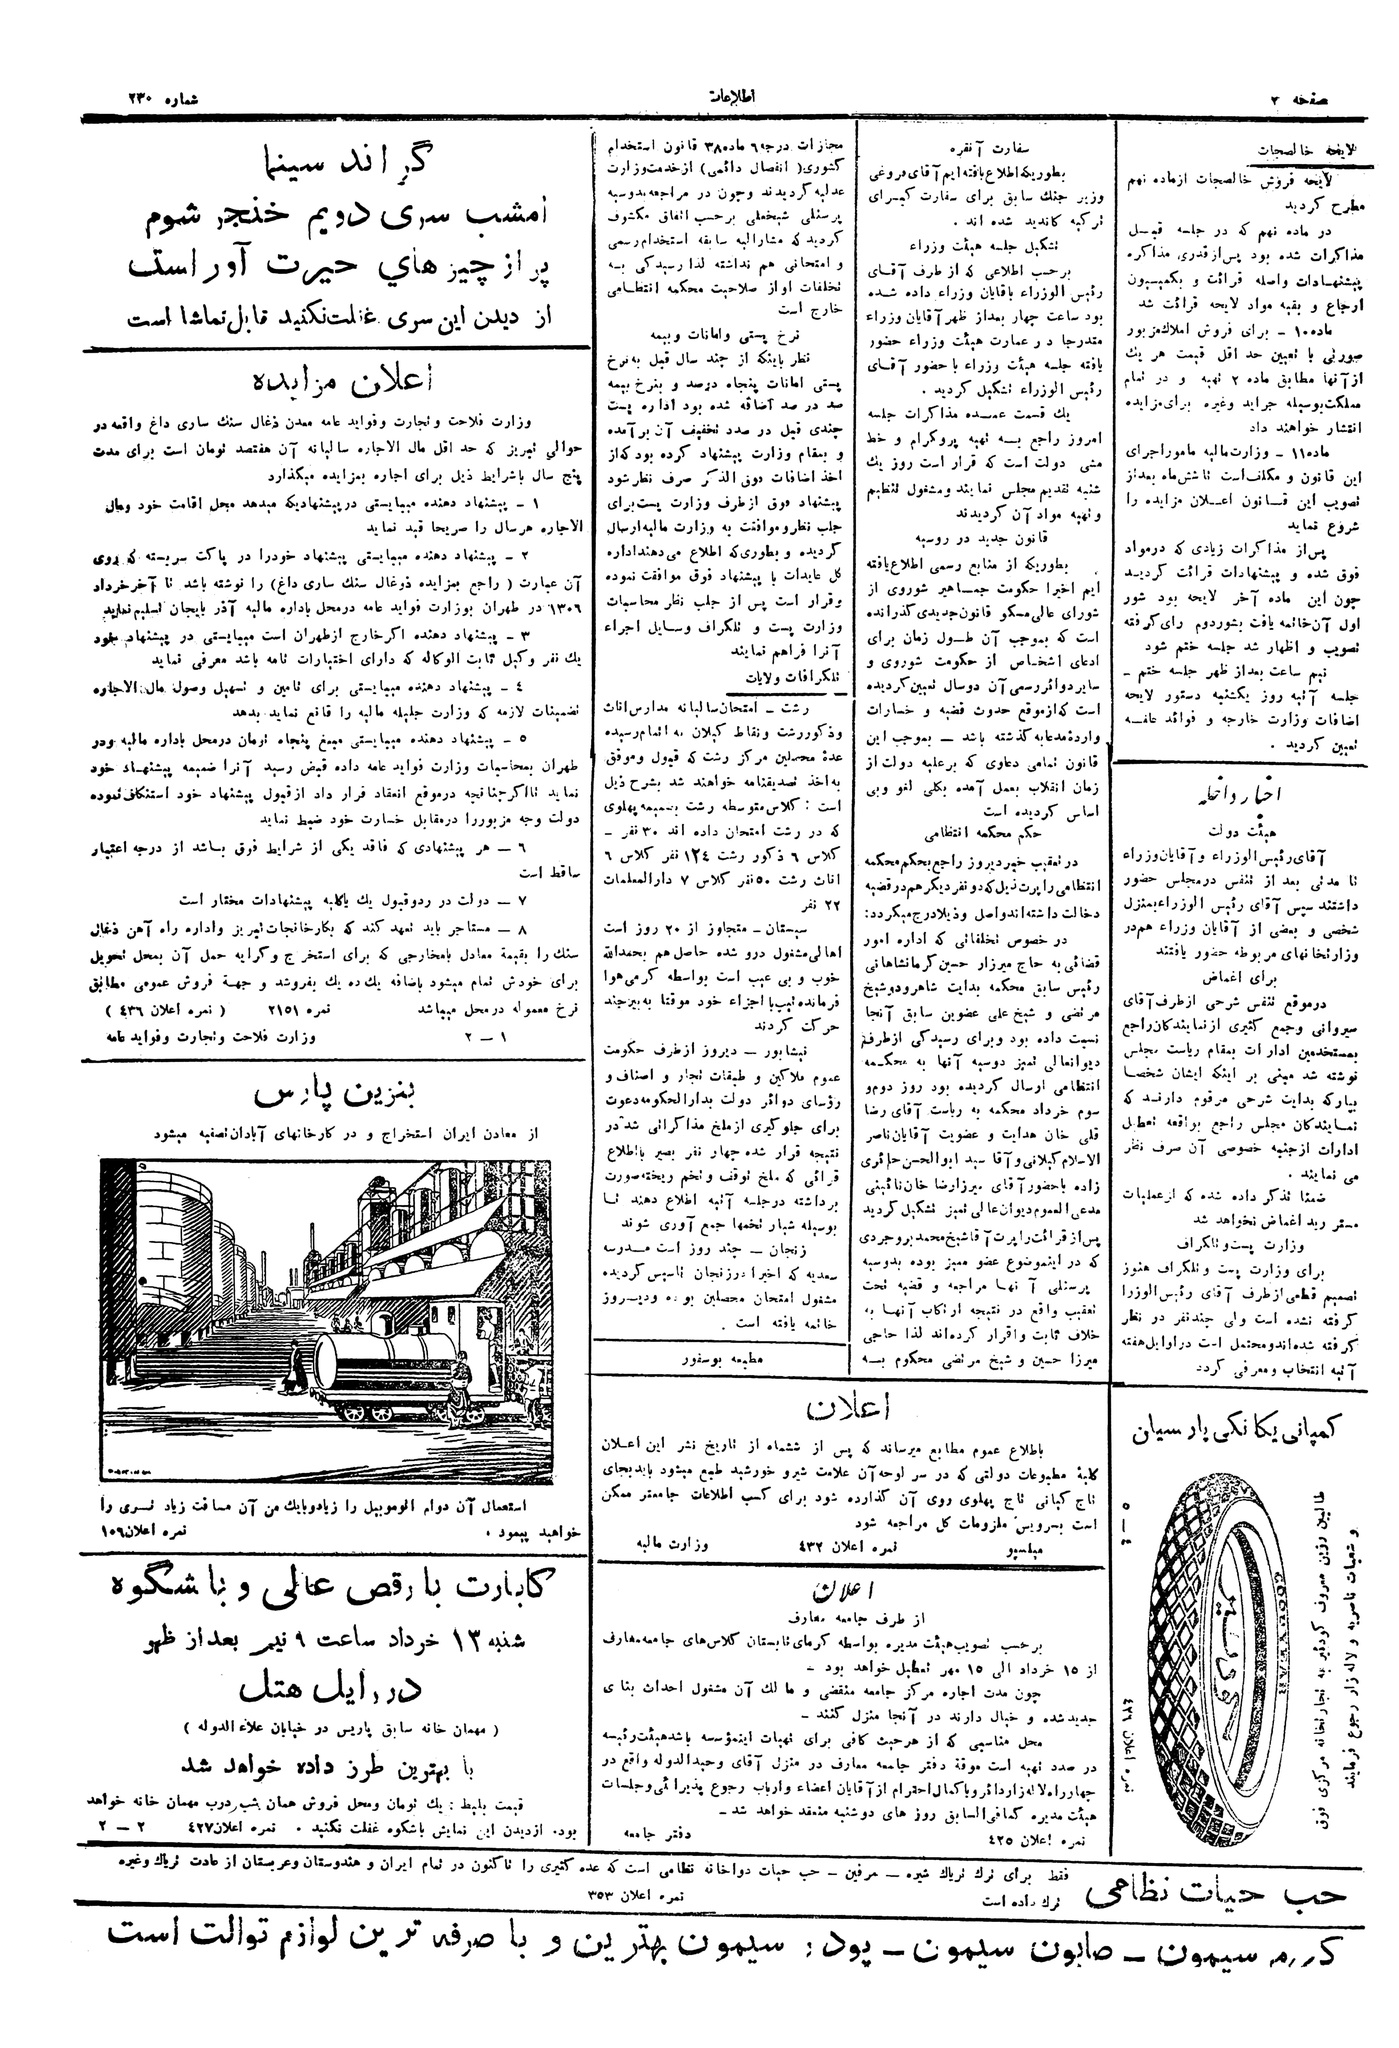 صفحه ۲
اطلاعات
شماره ۲۳۰
لایحه خالصجات
لایحه فروش خالصجات ازماده نهم
مطرح گردید
در ماده نهم که در جلسه قبل
مذاکرات شده بود پس‌ازقدری مذاکره
پیشنهادات واصله قرائت و بکمیسیون
ارجاع و بقیه مواد لایحه قرائت شد
ماده۱۰ - برای فروش املاك‌مزبور
صورتی با تعیین حد اقل قیمت هر یك
ازآنها مطابق ماده ۲ تهیه و در تمام
مملکت‌بوسیله جراید وغیره برای‌مزایده
انتشار خواهند داد
ماده۱۱ - وزارت‌مالیه ماموراجرای
این قانون و مکلف‌است تاشش‌ماه بعداز
تصویب این قانون اعلان مزایده را
شروع نماید
پس‌از مذاکرات زیادی که درمواد
فوق شده و پیشنهادات قرائت گردید
چون این ماده آخر لایحه بود شور
اول آن‌خاتمه یافت بشوردوم رای‌گرفته
تصویب و اظهار شد جلسه ختم شود
نیم ساعت بعداز ظهر جلسه ختم -
جلسه آتیه روز یکشنبه دستور لایحه
اضافات وزارت خارجه و فوائد عامه
تعیین گردید .
اخبار داخله
هیئت دولت
آقای رئیس‌الوزراء و آقایان وزراء
تا مدتی بعد از تنفس درمجلس حضور
داشتند سپس آقای رئیس الوزراءبمنزل
شخصی و بعضی از آقایان وزراء هم‌در
وزارتخانهای مربوطه حضور یافتند
برای اغماض
درموقع تنفس شرحی ازطرف آقای
شیروانی وجمع کثیری ازنمایندگان‌راجع
بمستخدمین ادارات بمقام ریاست مجلس
نوشته شد مبنی بر اینکه ایشان شخصا
بیارکه بدایت شرحی مرقوم دارند که
نمایندگان مجلس راجع بواقعه تعطیل
ادارات ازجنبه خصوصی آن صرف نظر
می نمایند .
ضمنا تذکر داده شده که ازعملیات
مستر رید اغماض نخواهد شد
وزارت پست‌وتلگراف
برای وزارت پست وتلگراف هنوز
تصمیم قطعی‌ازطرف آقای رئیس‌الوزرا
گرفته نشده است ولی چندنفر در نظر
گرفته شده‌اندومحتمل است دراوایل‌هفته
آتیه انتخاب ومعرفی گردد
سفارت آنقره
بطوریکه‌اطلاع یافته‌ایم آقای‌فروغی
وزیر جنك سابق برای سفارت کبرای
ترکیه کاندید شده اند .
تشکیل جلسه هیئت وزراء
برحسب اطلاعی که از طرف آقای
رئیس الوزراء باقایان وزراء داده شده
بود ساعت چهار بعداز ظهرآقایان وزراء
متدرجا در عمارت هیئت وزراء حضور
یافته جلسه هیئت وزراء با حضور آقای
رئیس الوزراء تشکیل گردید .
یك قسمت عمده مذاکرات جلسه
امروز راجع به تهیه پروگرام و خط
مشی دولت است که قرار است روز یك
شنبه تقدیم مجلس نمایند ومشغول تنظیم
و تهیه مواد آن گردیدند
قانون جدید در روسیه
بطوریکه از منابع رسمی اطلاع‌یافته
ایم اخیرا حکومت جماهیر شوروی از
شورای عالی‌مسکو قانون‌جدیدی گذرانده
است که بموجب آن طول زمان برای
ادعای اشخاص از حکومت شوروی و
سایردوائررسمی آن دوسال تعیین‌گردیده
است که‌ازموقع حدوث قضیه و خسارات
وارده‌مدعابه گذشته باشد - بموجب این
قانون تمامی دعاوی که برعلیه دولت از
زمان انقلاب بعمل آمده بکلی لغو وبی
اساس گردیده است
حکم محکمه انتظامی
در تعقیب خبر دیروز راجع بحکم محکمه
انتظامی را پرت ذیل که دونفر دیگرهم درقضیه
دخالت داشته‌اندواصل وذیلادرج میگردد:
در خصوص تخلفاتی که اداره امور
قضائی به حاج میرزار حسین کرمانشاهانی
رئیس سابق محکمه بدایت شاهرودوشیخ
مرتضی و شیخ علی عضوین سابق آنجا
نسبت داده بود وبرای رسیدگی ازطرف
دیوانعالی تمیز دوسیه آنها به محکمه
انتظامی ارسال گردیده بود روز دوم‌و
سوم خرداد محکمه به ریاست آقای رضا
قلی خان هدایت و عضویت آقایان‌ناصر
الاسلام گیلانی‌وآقا سید ابوالحسن حایری
زاده باحضور آقای میرزارضا خان نائینی
مدعی العموم دیوان عالی تمیز تشکیل گردید
پس‌ازقرائت راپرت آقاشیخ‌محمدبروجردی
که در اینموضوع عضو ممیز بوده بدوسیه
پرسنلی آنها مراجعه و قضیه تحت
تعقیب واقع در نتیجه ارتکاب آنها به
خلاف ثابت واقرار کرده‌اند لذا حاجی
میرزا حسین و شیخ مرتضی محکوم به
مجازات درجه۶ ماده۳۸ قانون استخدام
کشوری( انفصال دائمی) ازخدمت وزارت
عدلیه گردیدند وچون در مراجعه‌بدوسیه
پرسنلی شیخعلی برحسب اتفاق مکشوف
گردید که مشارالیه سابقه استخدام رسمی
و امتحانی هم نداشته لذا رسیدگی به
تخلفات اواز صلاحیت محکمه انتظامی
خارج است
نرخ پستی وامانات وبیمه
نظر باینکه از چند سال قبل به‌نرخ
پستی امانات پنجاه درصد و بنرخ بیمه
صد در صد اضافه شده بود اداره پست
چندی قبل در صدد تخفیف آن برآمده
و بمقام وزارت پیشنهاد کرده بودکه‌از
اخذ اضافات فوق الذکر صرف نظرشود
پیشنهاد فوق ازطرف وزارت پست‌برای
جلب نظر وموافقت به وزارت مالیه‌ارسال
گردیده و بطوری‌که اطلاع می‌دهنداداره
کل عایدات با پیشنهاد فوق موافقت نموده
وقرار است پس از جلب نظر محاسبات
وزارت پست و تلگراف وسایل اجراء
آنرا فراهم نمایند
تلگرافات ولایات
رشت - امتحان‌سالیانه مدارس‌اناث
وذکوررشت ونقاط گیلان به اتمام‌رسیده
عدهٔ محصلین مرکز رشت که قبول وموفق
به‌اخذ تصدیقنامه خواهند شد بشرح ذیل
است : کلاس متوسطه رشت بضمیمه پهلوی
که در رشت امتحان داده اند ۳۰ نفر -
کلاس ۶ ذکور رشت ۱۲۴ نفر کلاس ۶
اناث رشت ۵۰نفر کلاس ۷ دارالمعلمات
۲۲ نفر
سیستان - متجاوز از ۲۰ روز است
اهالی مشغول درو شده حاصل هم بحمدالله
خوب و بی عیب است بواسطه گرمی‌هوا
فرمانده تیپ‌با اجزاء خود موقتا به‌بیرجند
حرکت کردند
نیشابور - دیروز ازطرف حکومت
عموم ملاکین و طبقات تجار و اصناف و
رؤسای دوائر دولت بدارالحکومه‌دعوت
برای جلوگیری ازملخ مذاکراتی شد در
نتیجه قرار شده چهار نفر بصیر بااطلاع
قرائی که ملخ توقف و تخم ریخته‌صورت
برداشته درجلسه آتیه اطلاع دهند تا
بوسیله شیار تخمها جمع آوری شوند
زنجان - چند روز است مدرسه
سعدیه که اخیرا درزنجان تاسیس گردیده
مشغول امتحان محصلین بوده ودیروز
خاتمه یافته است .
مطبعه بوسفور
گراند سینما
امشب سری دویم خنجر شوم
پر از چیزهای حیرت آور است
از دیدن این سری غفلت نکنید قابل تماشا است
اعلان مزایده
وزارت فلاحت وتجارت وفواید عامه معدن ذغال سنك ساری داغ واقعه در
حوالی تبریز که حد اقل مال الاجاره سالیانه آن هفتصد تومان است برای مدت
پنج سال باشرایط ذیل برای اجاره بمزایده میگذارد
۱ - پیشنهاد دهنده میبایستی درپیشنهادیکه میدهد محل اقامت خود ومال
الاجاره هرسال را صریحا قید نماید
۲ - پیشنهاد دهنده میبایستی پیشنهاد خودرا در پاکت سربسته که روی
آن عبارت ( راجع بمزایده ذوغال سنك ساری داغ) را نوشته باشد تا آخرخرداد
۱۳۰۶ در طهران بوزارت فواید عامه درمحل باداره مالیه آذر بایجان تسلیم نماید
۳ - پیشنهاد دهنده اگرخارج ازطهران است میبایستی در پیشنهاد خود
یك نفر وکیل ثابت الوکاله که دارای اختیارات تامه باشد معرفی نماید
۴ - پیشنهاد دهنده میبایستی برای تامین و تسهیل وصول مال‌الاجاره
تضمینات لازمه که وزارت جلیله مالیه را قانع نماید بدهد
۵ - پیشنهاد دهنده میبایستی مبلغ پنجاه تومان درمحل باداره مالیه ودر
طهران بمحاسبات وزارت فواید عامه داده قبض رسید آنرا ضمیمه پیشنهاد خود
نماید تااگرچنانچه درموقع انعقاد قرار داد ازقبول پیشنهاد خود استنکاف‌نموده
دولت وجه مزبوررا درمقابل خسارت خود ضبط نماید
۶ - هر پیشنهادی که فاقد یکی از شرایط فوق باشد از درجه اعتبار
ساقط است
۷ - دولت در ردوقبول یك یاکلیه پیشنهادات مختار است
۸ - مستاجر باید تعهد کند که بکارخانجات‌تبریز واداره راه آهن ذغال
سنك را بقیمة معادل بامخارجی که برای استخراج وکرایه حمل آن بمحل تحویل
برای خودش تمام میشود باضافه یك‌ده یك بفروشد و جهة فروش عمومی مطابق
نرخ معموله درمحل میباشد نمره ۲۱۵۱ ( نمره اعلان ۴۳۶ )
۱ - ۲ وزارت فلاحت وتجارت وفواید عامه
بنزین پارس
از معادن ایران استخراج و در کارخانهای آبادان‌تصفیه میشود
استعمال آن دوام اتوموبیل را زیادوبایك من آن مسافت زیاد تری را
خواهید پیمود . نمره اعلان۱۵۶
کابارت با رقص عالی و باشگوه
شنبه ۱۳ خرداد ساعت ۹ نیم بعد از ظهر
در رایل هتل
( مهمان خانه سابق پاریس در خیابان علاءالدوله )
با بهترین طرز داده خواهد شد
قیمت بلیط : یك تومان ومحل فروش همان شب درب مهمان خانه خواهد
بود. ازدیدن این نمایش باشکوه غفلت نکنید . نمره اعلان۴۲۷ ۲ - ۲
اعلان
باطلاع عموم مطابع میرساند که پس از ششماه از تاریخ نشر این اعلان
کلیهٔ مطبوعات دولتی که در سر لوحه آن علامت شیرو خورشید طبع میشود بایدبجای
تاج کیانی تاج پهلوی روی آن گذارده شود برای کسب اطلاعات جامعتر ممکن
است بسرویس ملزومات کل مراجعه شود
میلسپو نمره اعلان ۴۳۲ وزارت مالیه
اعلان
از طرف جامعه معارف
برحسب تصویب‌هیئت مدیره بواسطه گرمای‌تابستان کلاس‌های جامعه‌معارف
از ۱۵ خرداد الی ۱۵ مهر تعطیل خواهد بود -
چون مدت اجاره مرکز جامعه منقضی و مالك آن مشغول احداث بنای
جدیدشده و خیال دارند در آنجا منزل کنند -
محل مناسبی که از هرحیث کافی برای تهیات اینمؤسسه باشدهیئت‌رئیسه
در صدد تهیه است موقة دفتر جامعه معارف در منزل آقای وحیدالدوله واقع در
چهارراه‌لاله‌زاردائر وباکمال‌احترام ازآقایان اعضاء وارباب رجوع پذیرائی‌وجلسات
هیئت مدیره کمافی‌السابق روز های دوشنبه منعقد خواهد شد -
نمره اعلان ۴۲۵ دفتر جامعه
کمپانی یکانکی پارسیان
طالبین رزین معروف گودئیر به تجارتخانه مرکزی فوق
و شعبات ناصریه و لاله‌زار رجوع فرمایند
گودئیر
GOODYEAR
۵ - ۴
نمره اعلان ۴۲۹
حب حیات نظامی
فقط برای ترك تریاك شیره - مرفین - حب حیات دواخانه نظامی است که عده کثیری را تاکنون در تمام ایران و هندوستان وعربستان از عادت تریاك وغیره
ترك داده است نمره اعلان ۳۵۳
کرمه سیمون - صابون سیمون - پودر سیمون بهترین و با صرفه ترین لوازم توالت است